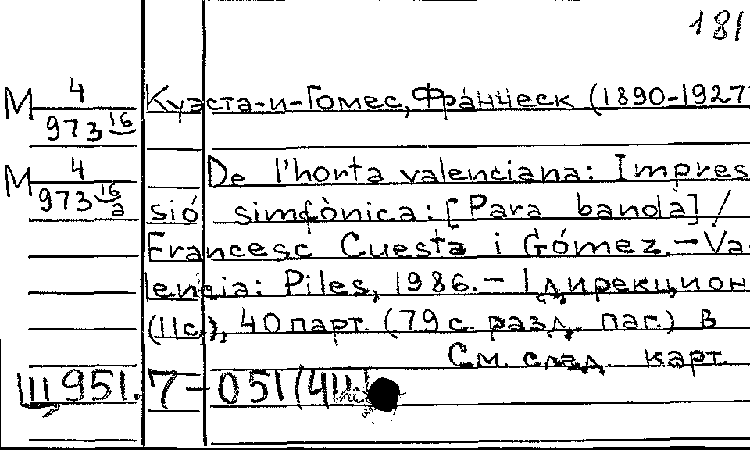 181
М 4/973 16 Куэста-и-Гомес, Франческ (1890-1927
М 4/973 16а De l'horta valenciana: Impres
sió simfònica: [Para banda] /
Francesc Cuesta i Gómez. - Va
lencia: Piles, 1986. - 1 дирекцион
(11с.), 40 парт. (79 с. разд. паг.) В
См. след. карт.
Щ951.7-051(4